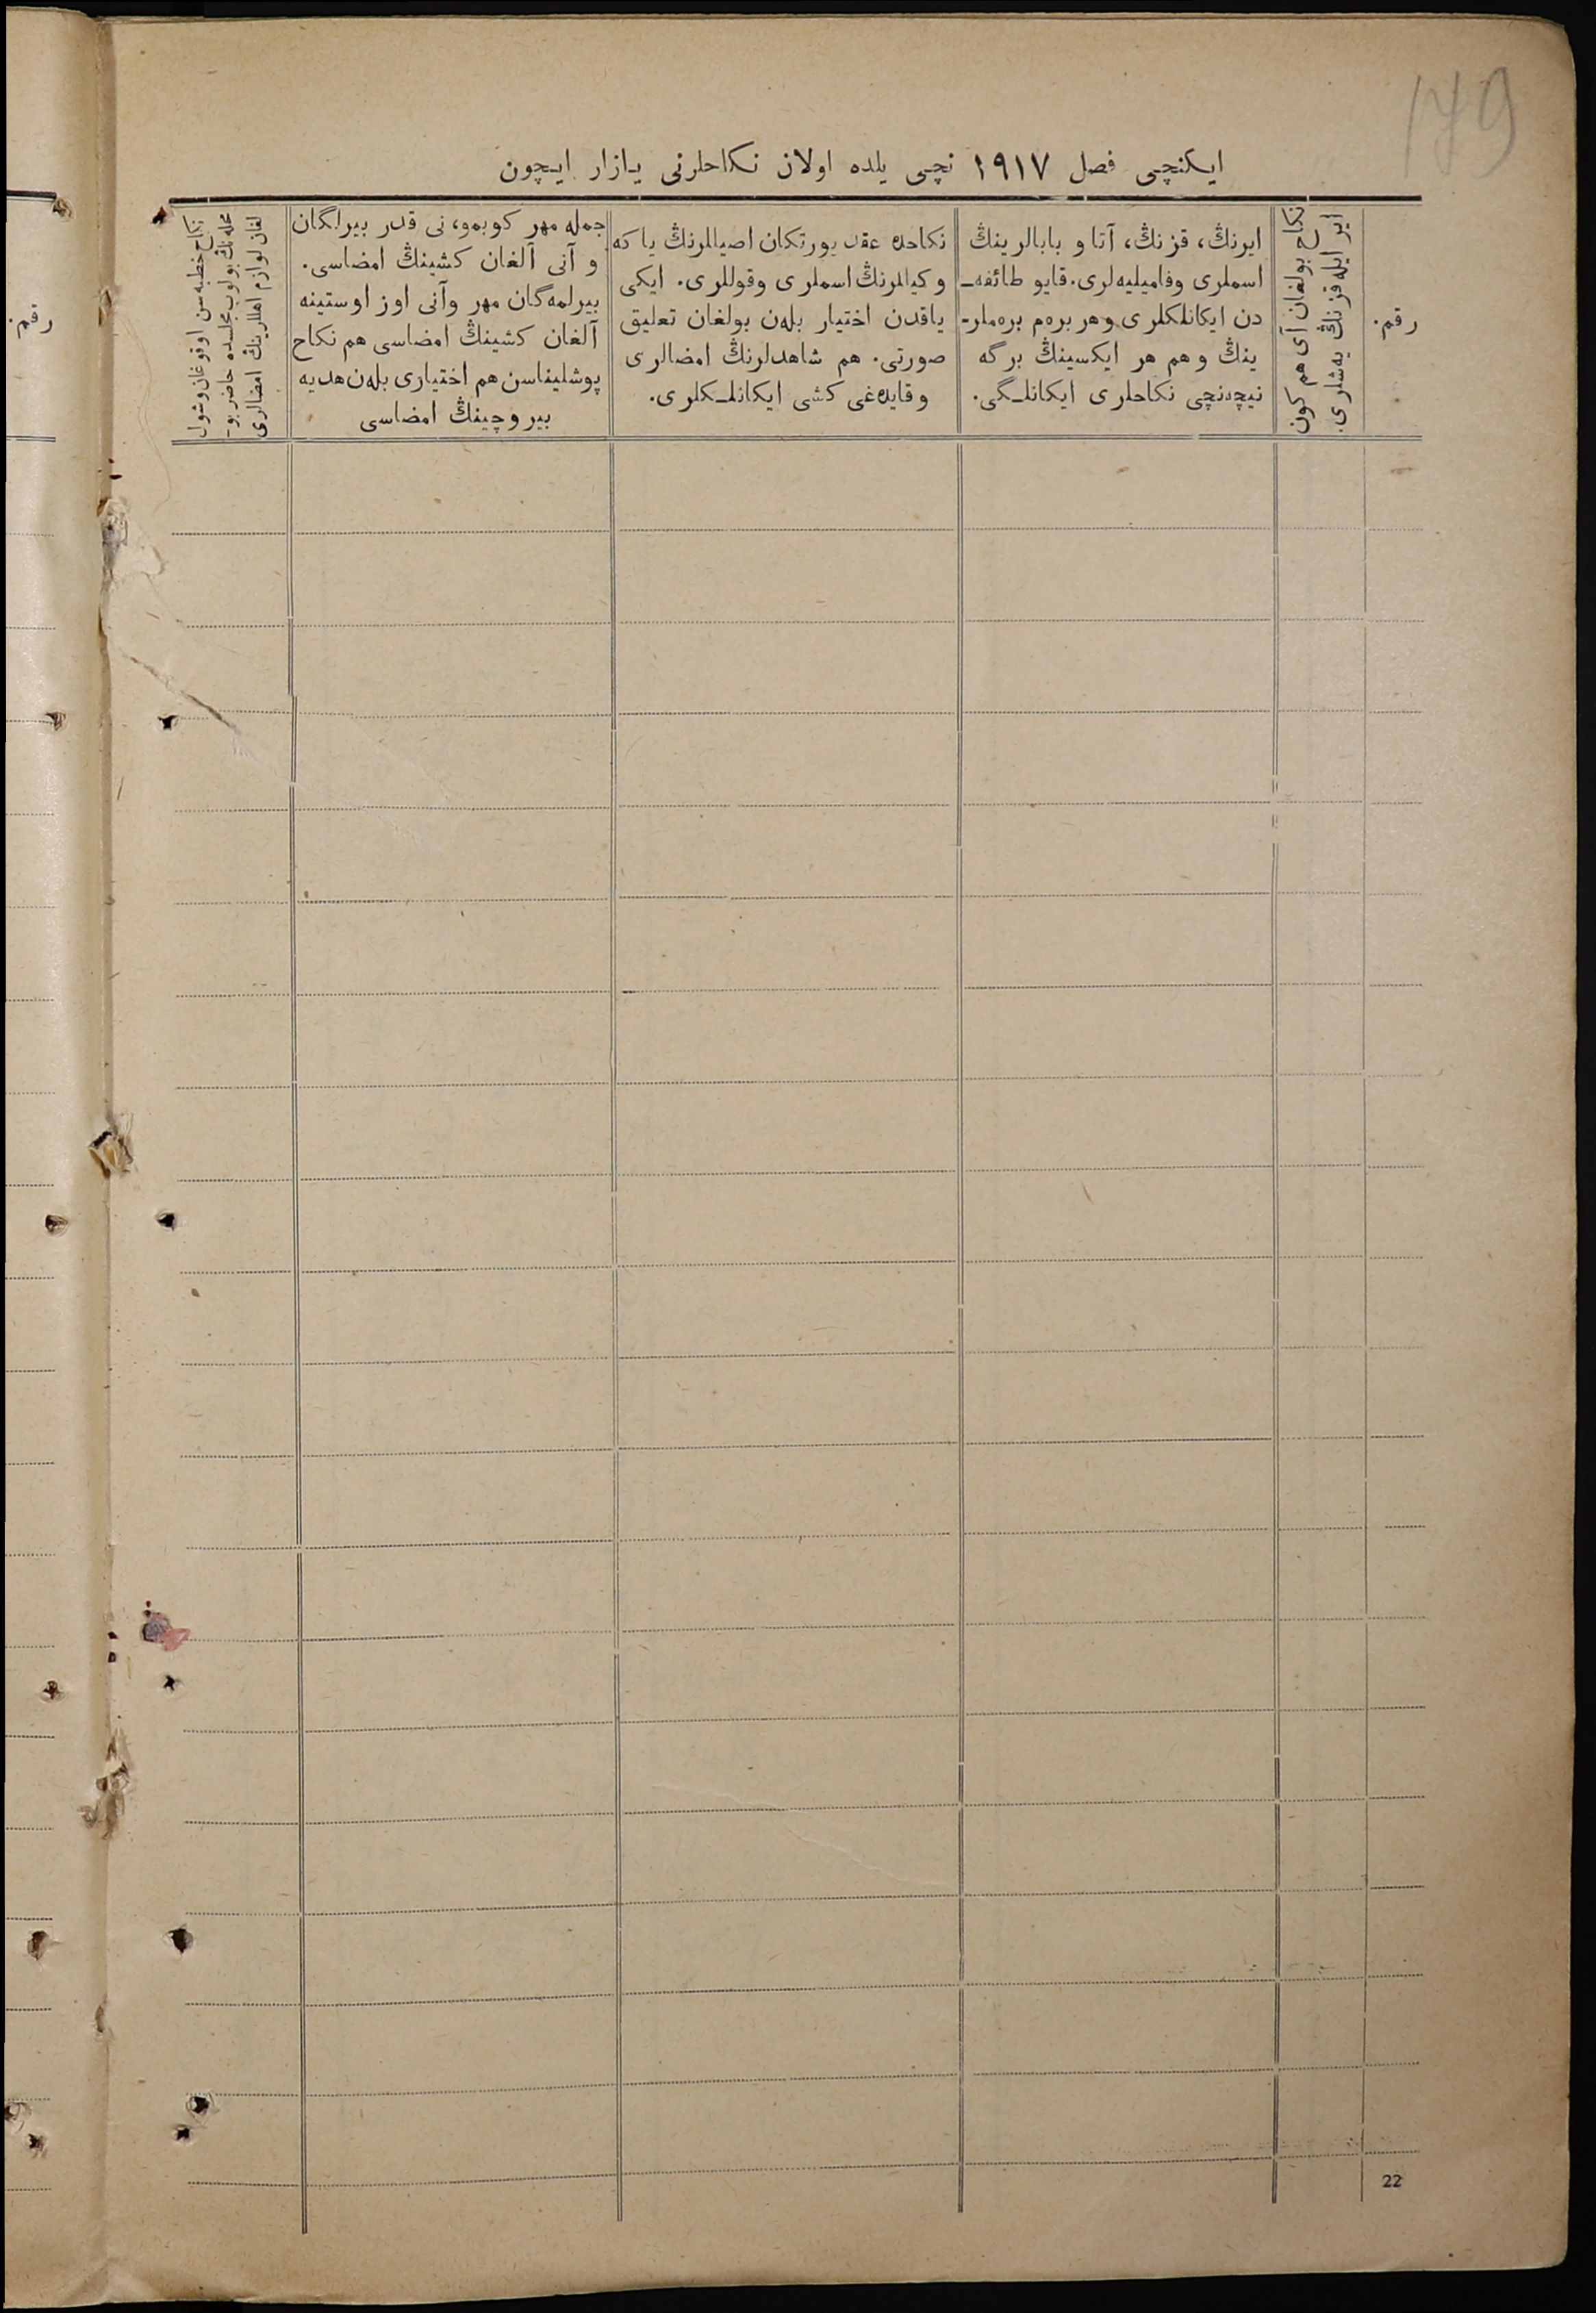 179
ایکنچی فصل ١٩١٧ نچی یلده اولان نکاحلرنی یازار ایچون
رقم.
نکاح بولغان آی هم کون
ایر ایله قزنڭ یه‌شلری.
ایرنڭ، قزنڭ، آتا و بابالرینڭ
اسملری وفامیلیه‌لری. قایو طائفه‌ـ
دن ایکانلکلری وهر بره‌م بره‌ملر-
ینڭ وهم هر ایکسینڭ برگه
نیچه‌نچی نکاحلری ایکانلـگی.
نکاحده عقد یورتکان اصیللرنڭ یا که
وکیللرنڭ اسملری وقوللری. ایکی
یاقدن اختیار بله‌ن بولغان تعلیق
صورتی. هم شاهدلرنڭ امضالری
وقایده‌غی کشی ایکانلـکلری.
جمله مهر کوبمو، نی قدر بیرلگان
و آنی آلغان کشینڭ امضاسی.
بیرلمه‌گان مهر وآنی اوز اوستینه
آلغان کشینڭ امضاسی هم نکاح
پوشلیناسن هم اختیاری بله‌ن هدیه
بیروچینڭ امضاسی
نکاح خطبه‌سن اوقوغان وشول
محله‌نڭ بولوب مجلسده حاضر بو-
لغان لوازم اهللرینڭ امضالری
رقم.
22